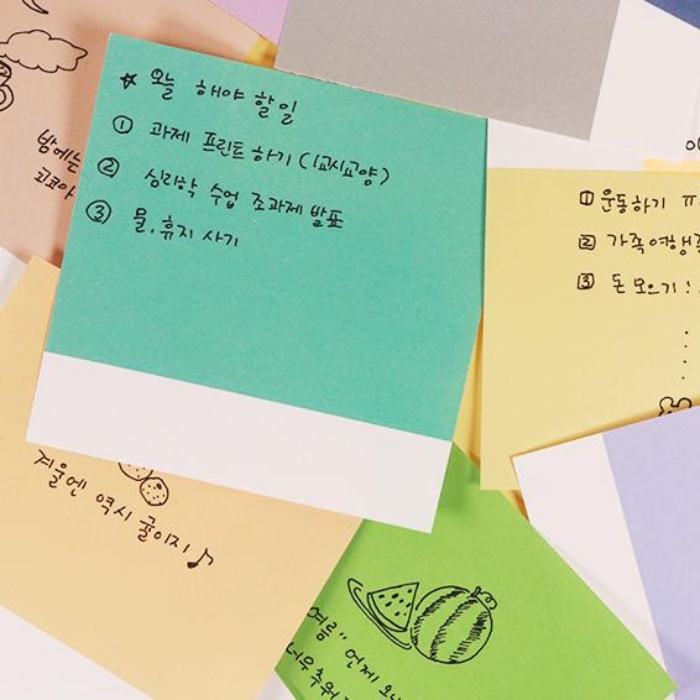 ☆ 오늘 해야 할일
① 과제 프린트 하기 (1교시교양)
② 심리학 수업 조과제 발표
③ 물, 휴지 사기
밤에는
코코아
1 운동하기 ㅠ
2 가족여행
3 돈 모으기!
겨울엔 역시 귤이지♪
여름" 언제 오
너무추워